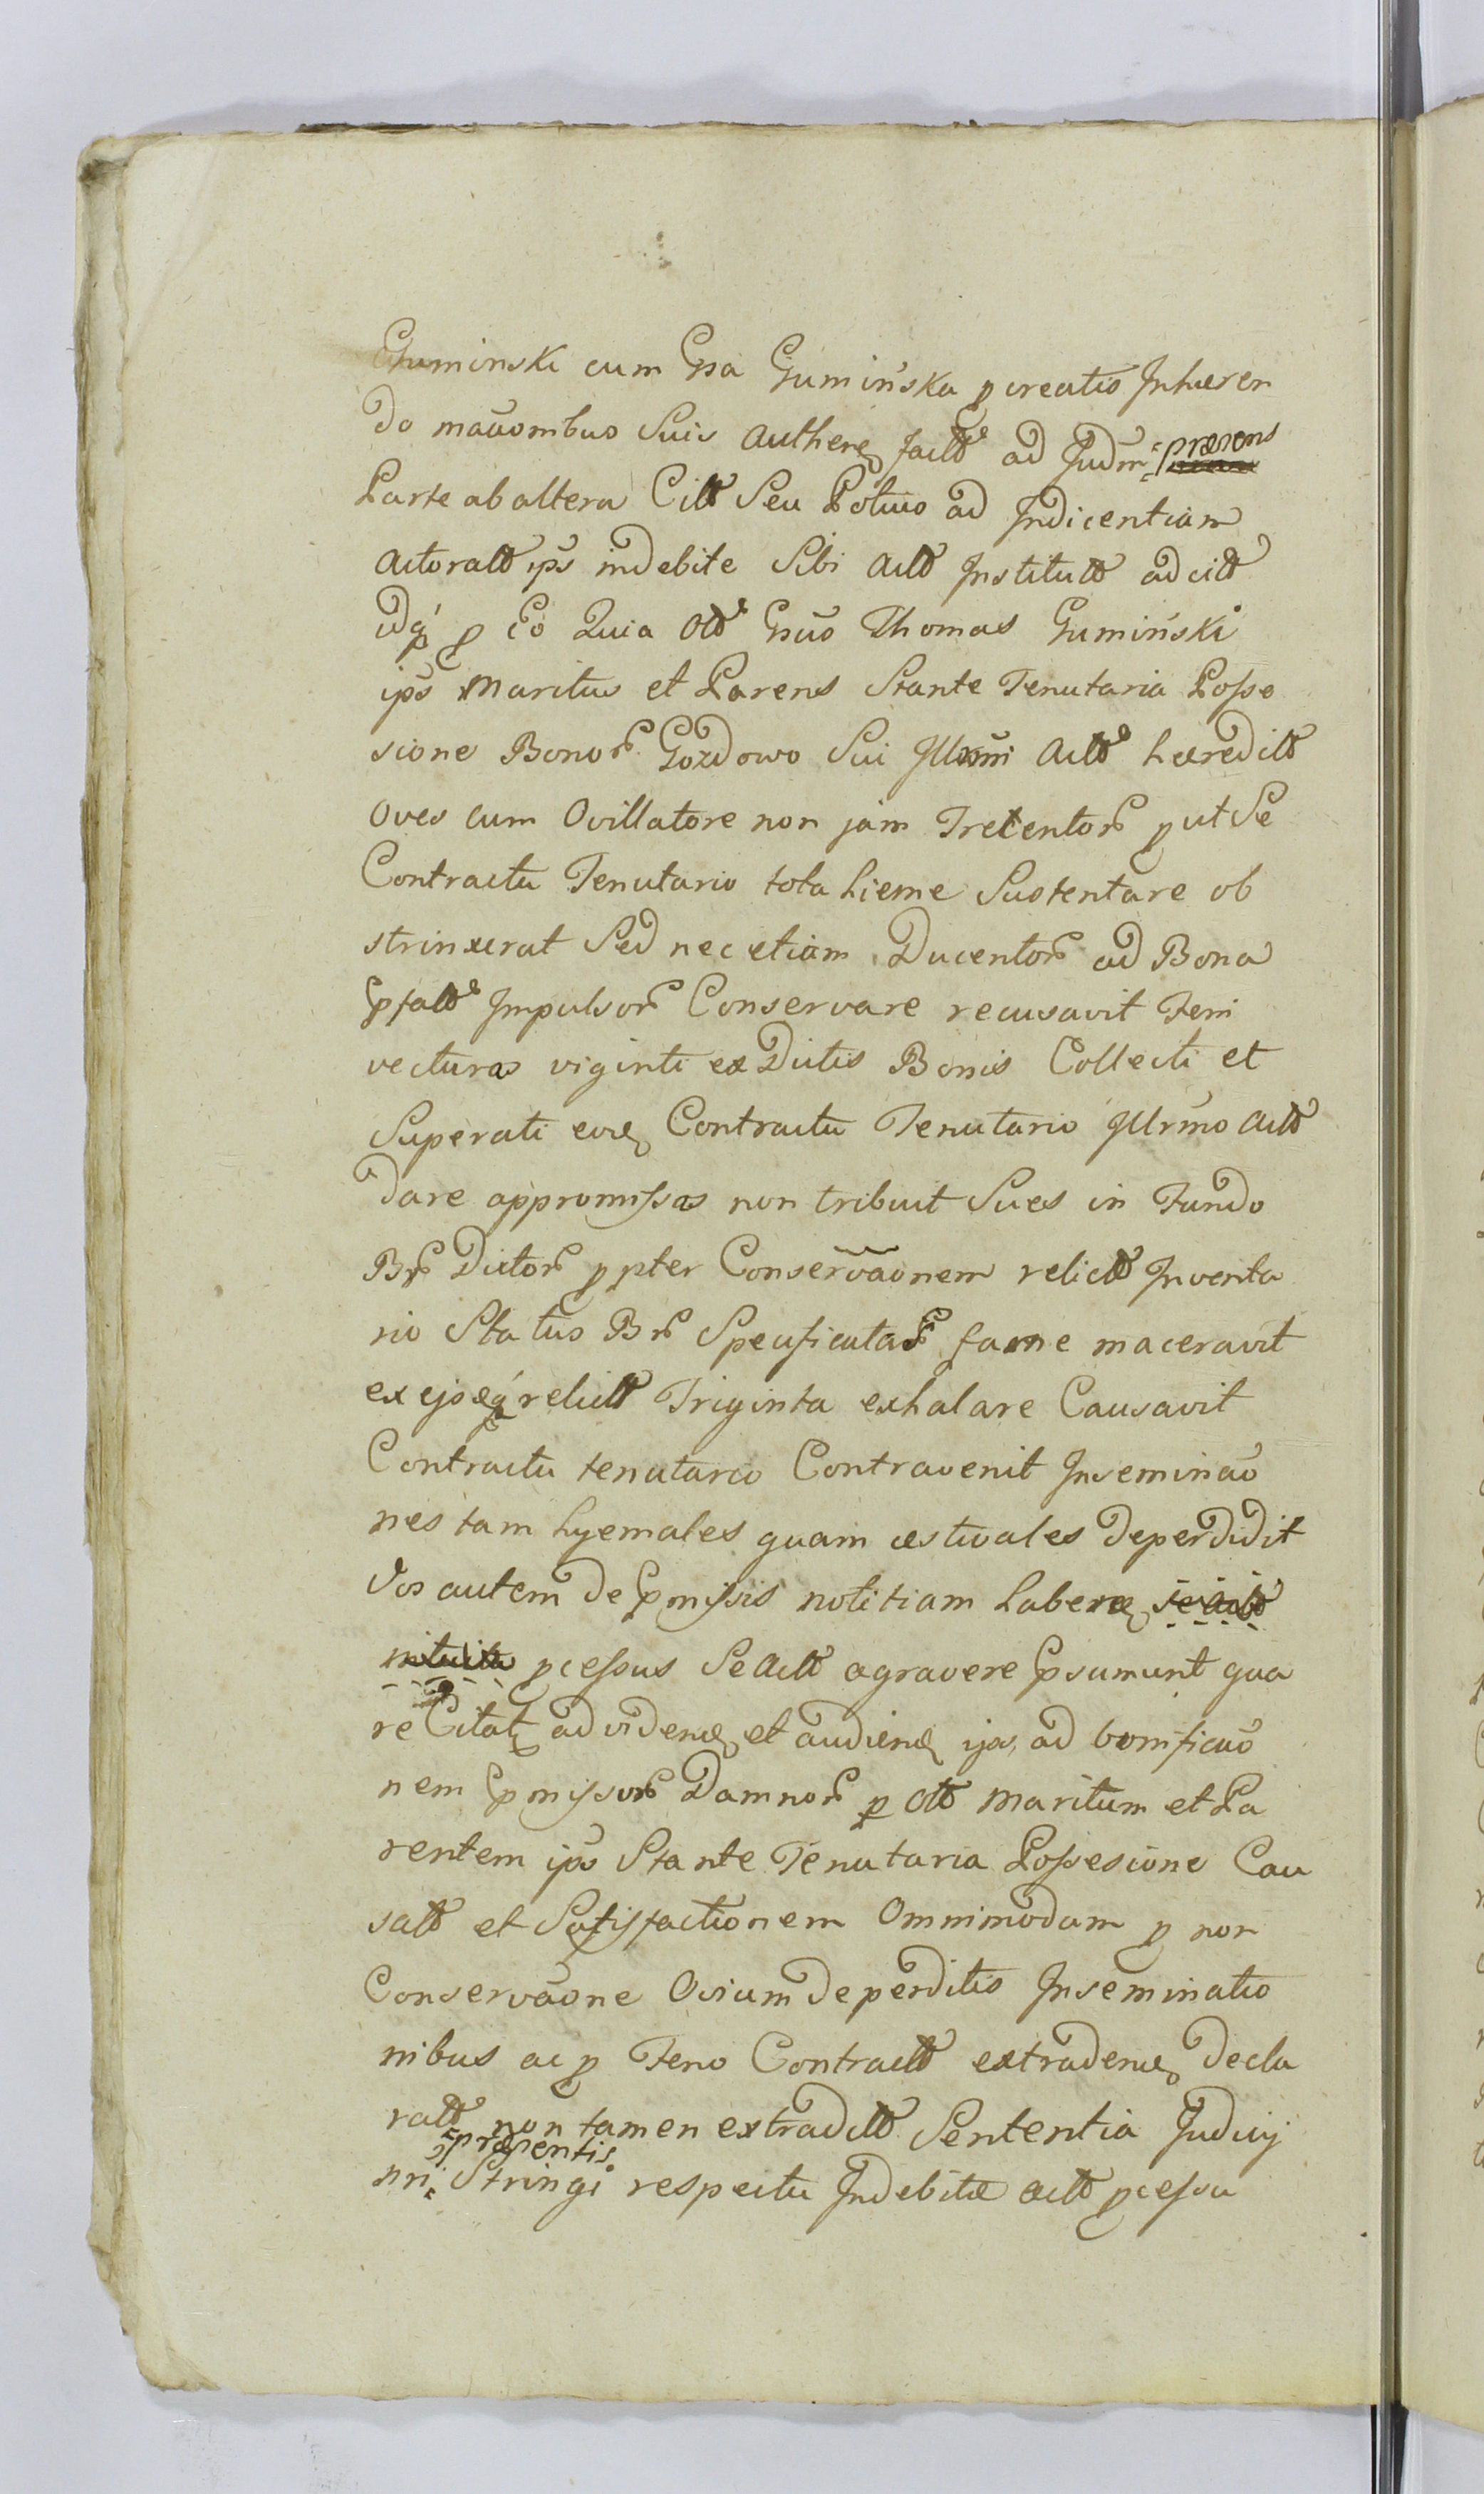 Guminski cum Gsa Gumińska pcreatis Inhæren
do maũonibus Suis authen factt ad Judm præsens
Parte ab altera Citt Seu Potius ad Indicentiam
actoratt ips indebite Sibi actt Institutt ad citt
idq p Eo Quia Ott Gsus Thomas Gumiński
ips Maritus et Parens Stante Tenutaria Posse
sione Bonor Gozdowo Sui Illmi actt hæreditt
Oves cum Ovillatore non jam Trecentor put Se
Contractu Tenutario tota hieme Sustentare ob
strinxerat Sed nec etiam Ducentor ad Bona
pfatt Impulsor Conservare recusavit Feni
vecturas viginti ex Dictis Bonis Collecti et
Superati eod Contractu Tenutario Illrmo actt
Dare appromissas non tribuit Sues in Fundo
Br Dictor ppter Conservãonem relictt Inventa
rio Status Br Specificatar fame maceravit
ex ejsq relictt Triginta exhalare Causavit
Contractu tenutario Contravenit Inseminaõ
nes tam hyemales quam æstivales deperdidit
Vos autem de pmissis notitiam haben
pcessus Se actt agravere psumunt qua
re Citat ad viden et audien ips ad bonificaõ
nem pmissor Damnor p ott Maritum et Pa
rentem ips Stante Tenutaria Possesione Cau
satt et Satisfactionem Omnimodam p non
Conservãone Ovium deperditis Inseminatio
nibus ac p Feno Contractt extraden decla
ratt non tamen extraditt Sententia Judicij
nri præsentis Stringi respectu Indebitæ actt pcessu